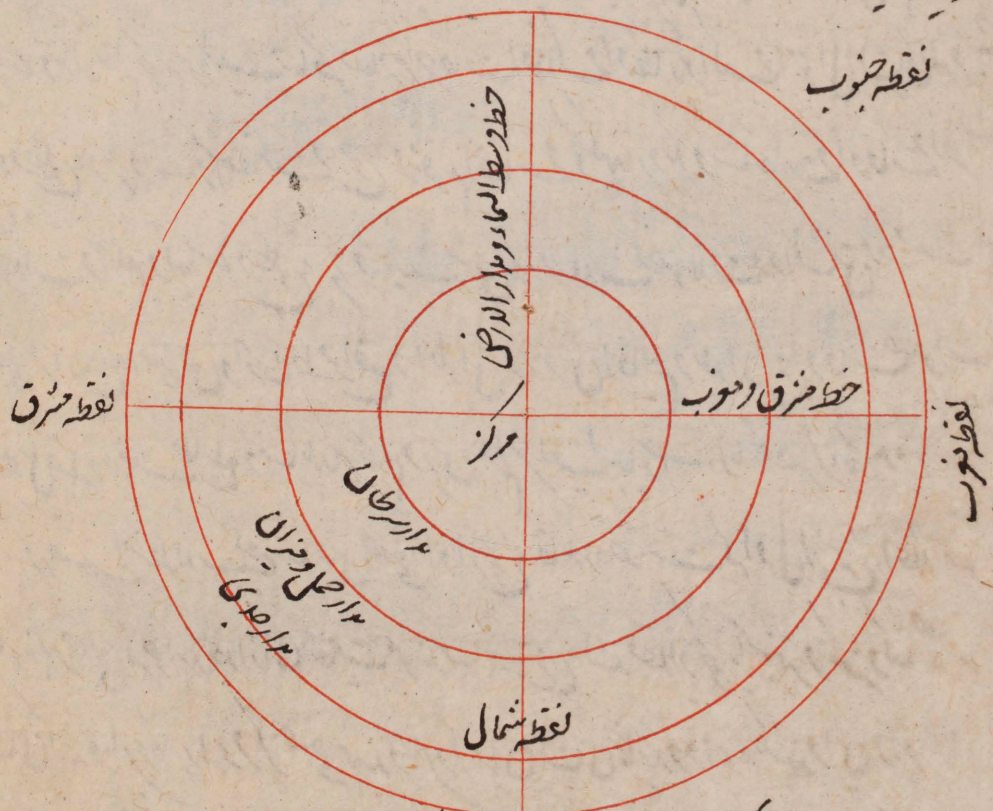 نقطه جنوب
خط وسط السماء و مدار الارض
خط مشرق و مغرب
نقطه مشرق
نقطه مغرب
مرکز
مدار سرطان
مدار حمل و میزان
مدار جدی
نقطه شمال